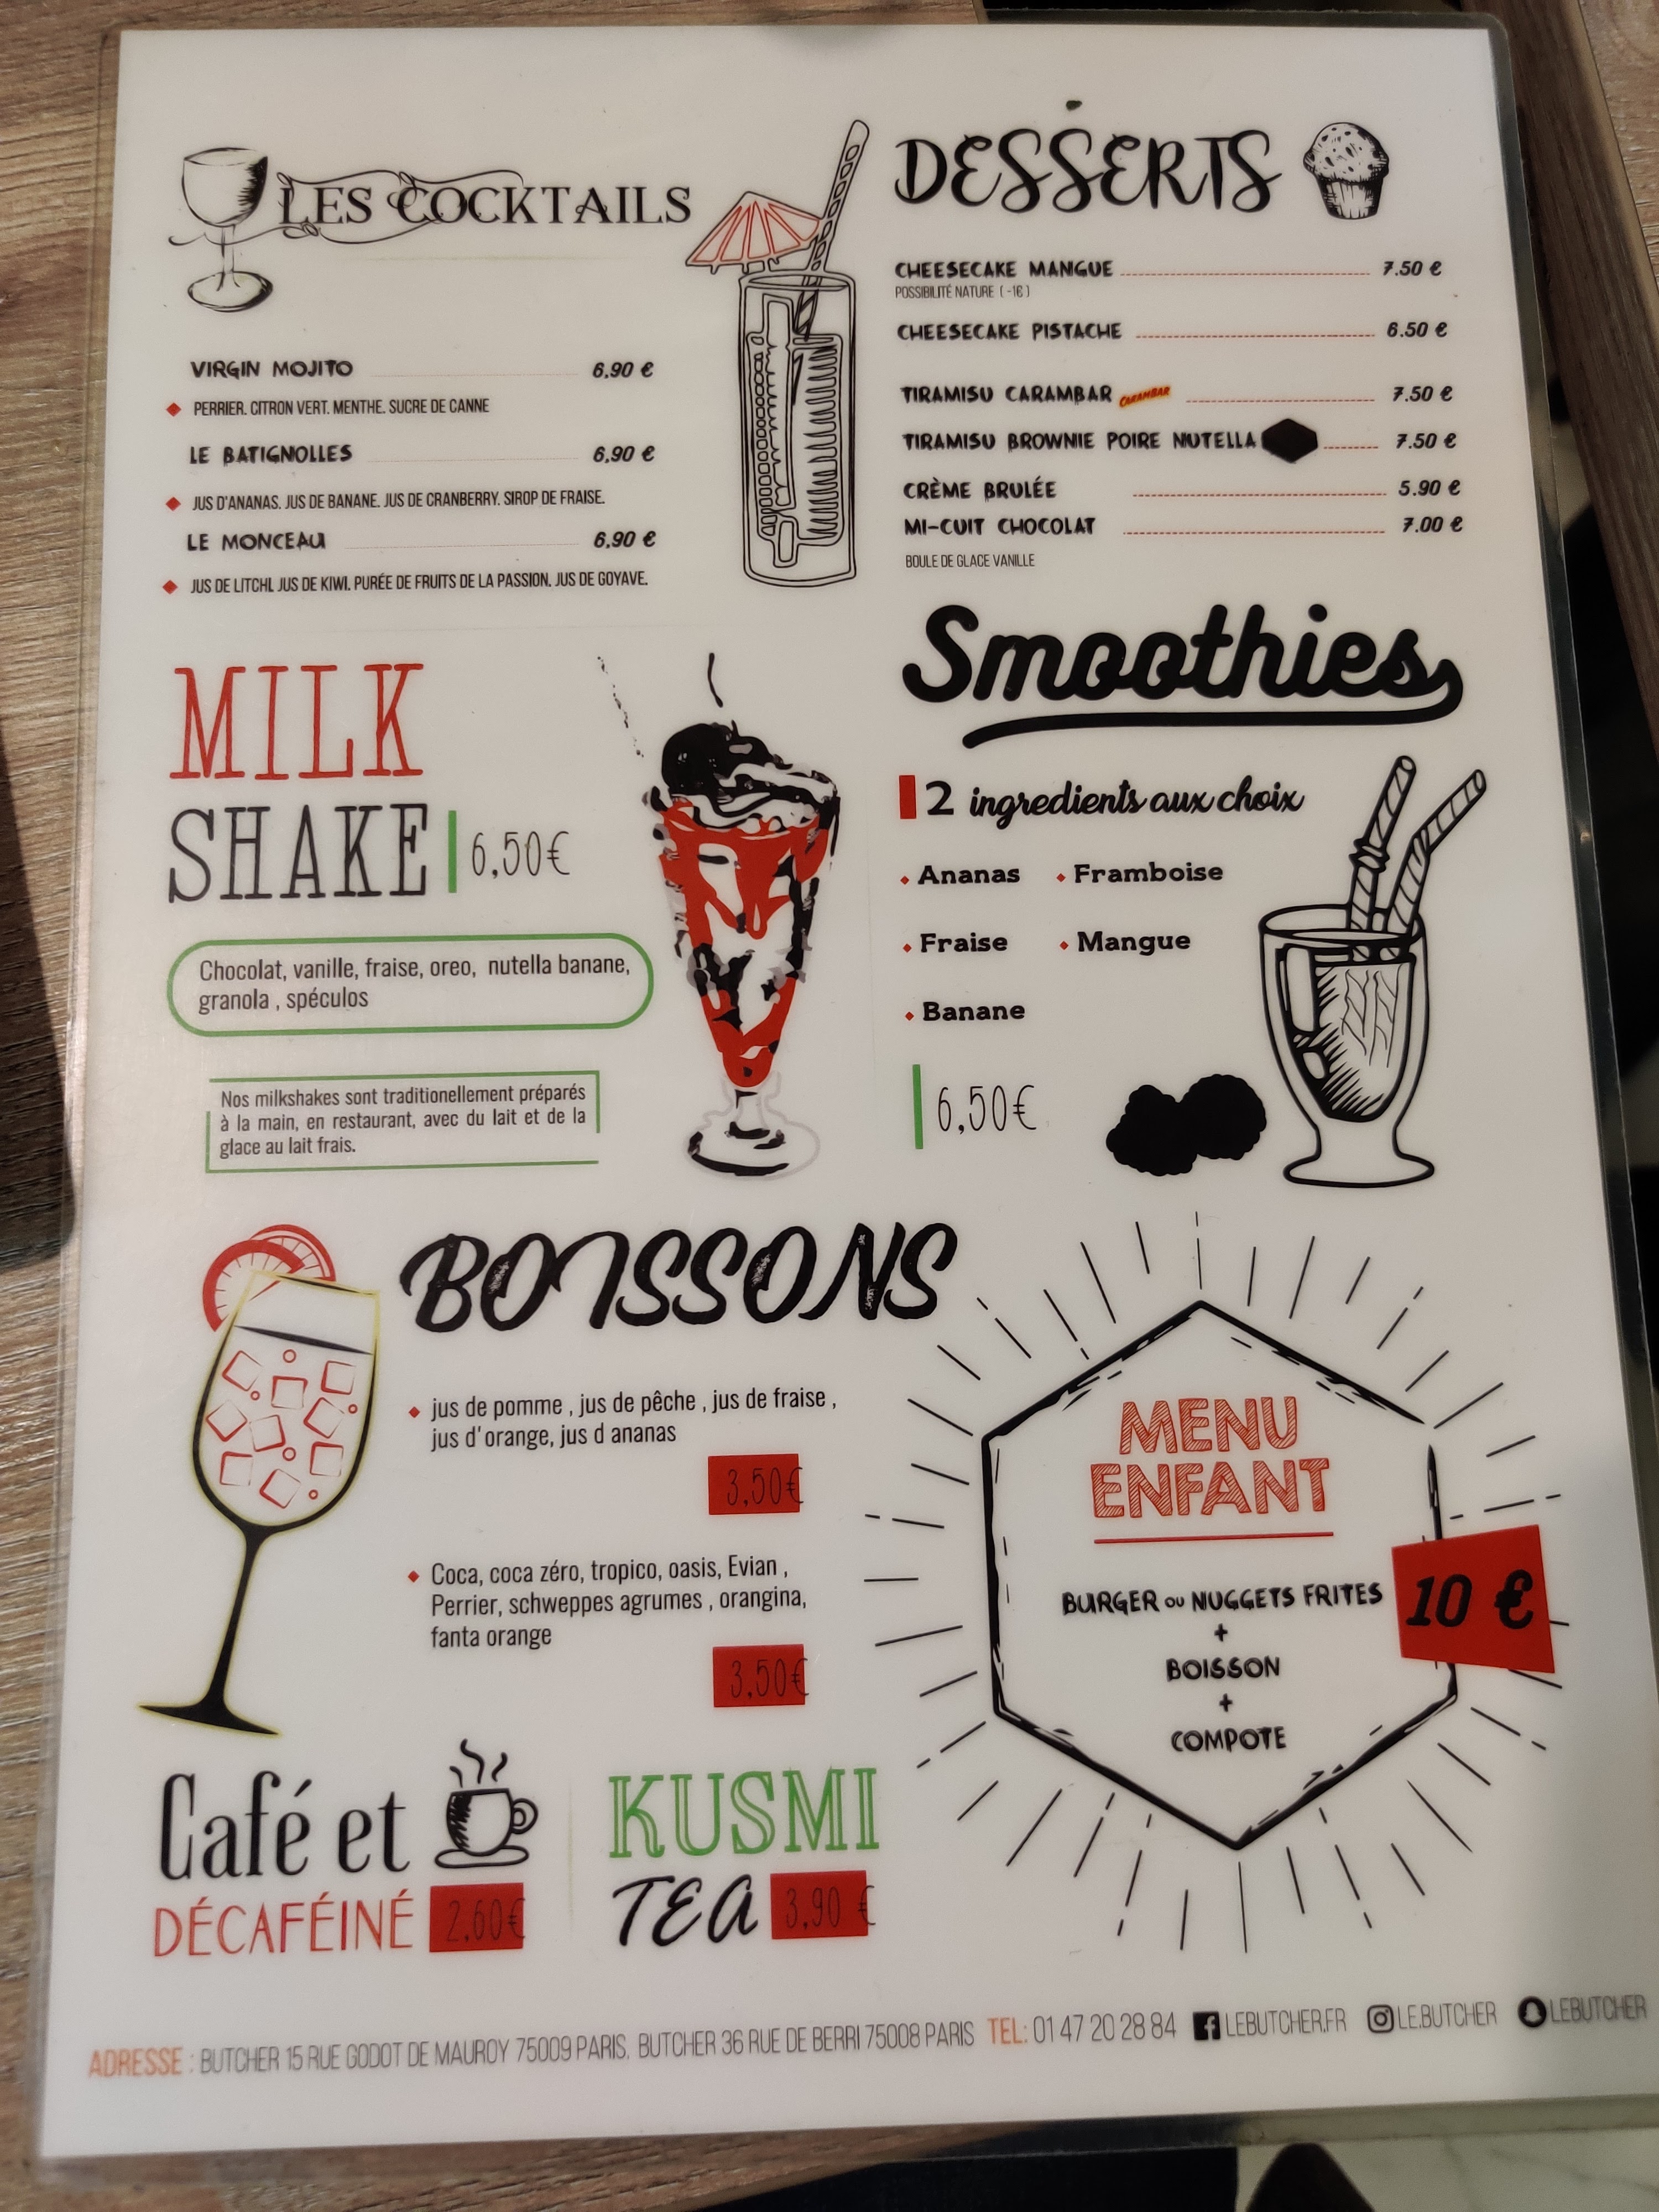 LES COCKTAILS
VIRGIN MOJITO 6,90 €
PERRIER. CITRON VERT. MENTHE. SUCRE DE CANNE
LE BATIGNOLLES 6,90 €
JUS D'ANANAS. JUS DE BANANE. JUS DE CRANBERRY. SIROP DE FRAISE.
LE MONCEAU 6,90 €
JUS DE LITCHI. JUS DE KIWI. PURÉE DE FRUITS DE LA PASSION. JUS DE GOYAVE.
DESSERTS
CHEESECAKE MANGUE 7.50 €
POSSIBILITÉ NATURE ( -1€ )
CHEESECAKE PISTACHE 6.50 €
TIRAMISU CARAMBAR CARAMBAR 7.50 €
TIRAMISU BROWNIE POIRE NUTELLA 7.50 €
CRÈME BRULÉE 5.90 €
MI-CUIT CHOCOLAT 7.00 €
BOULE DE GLACE VANILLE
MILK
SHAKE 6,50€
Chocolat, vanille, fraise, oreo, nutella banane,
granola , spéculos
Nos milkshakes sont traditionellement préparés
à la main, en restaurant, avec du lait et de la
glace au lait frais.
Smoothies
2 ingredients aux choix
Ananas Framboise
Fraise Mangue
Banane
6,50€
BOISSONS
jus de pomme , jus de pêche , jus de fraise ,
jus d'orange, jus d ananas
3,50€
Coca, coca zéro, tropico, oasis, Evian ,
Perrier, schweppes agrumes , orangina,
fanta orange
3,50€
MENU
ENFANT
BURGER OU NUGGETS FRITES
+
BOISSON
+
COMPOTE
10 €
Café et
DÉCAFÉINÉ 2,60€
KUSMI
TEA 3,90 €
ADRESSE : BUTCHER 15 RUE GODOT DE MAUROY 75009 PARIS. BUTCHER 36 RUE DE BERRI 75008 PARIS TEL: 01 47 20 28 84 LEBUTCHER.FR LE.BUTCHER LEBUTCHER